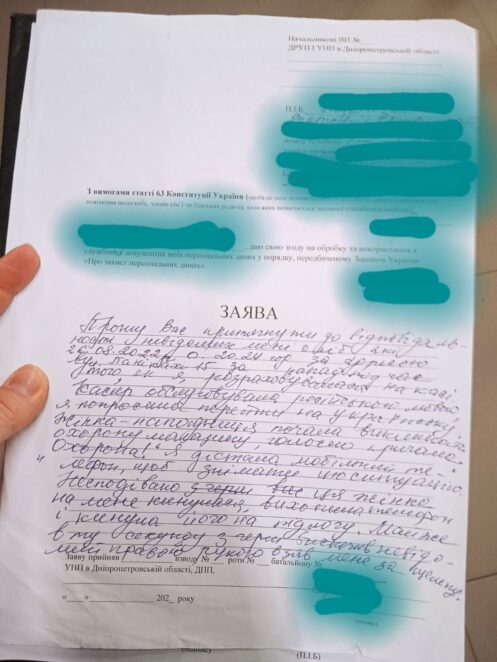 Начальникові ВП №
ДРУП ГУНП в Дніпропетровській області
П.І.Б.
номер телефону
З вимогами статті 63 Конституції України (особа не несе
пояснення щодо себе, членів сім'ї чи близьких родичів, коло яких визначається законом) ознайомлений(на).
, даю свою згоду на обробку та використання в
службових документах моїх персональних даних у порядку, передбаченому Законом України
«Про захист персональних даних».
ЗАЯВА
Прошу Вас притягнути до відповідаль-
ності невідомих мені осіб, які
26.08.2022 о 20.24 год за адресою
15 за нападі час
того, як я розрахувувалася на касі.
Касир обслуговувала російською мовою
я попросила перейти на українську
Жінка-напасниця почала викликати
охорону магазину, голосно кричала
"Охорона!" Я дістала мобільний те-
лефон, щоб знімати цю ситуацію
Несподівано з черги ця жінка
на мене кинулася, вихопила телефон
і кинула його на підлогу. Майже
в ту секунду з черги вискочив невідо-
мий правою рукою взяв мене за
Заяву прийняв взводу № роти № батальйону №
УПП в Дніпропетровській області, ДПП.
« » 202_ року
(підпис) (П.І.Б.)